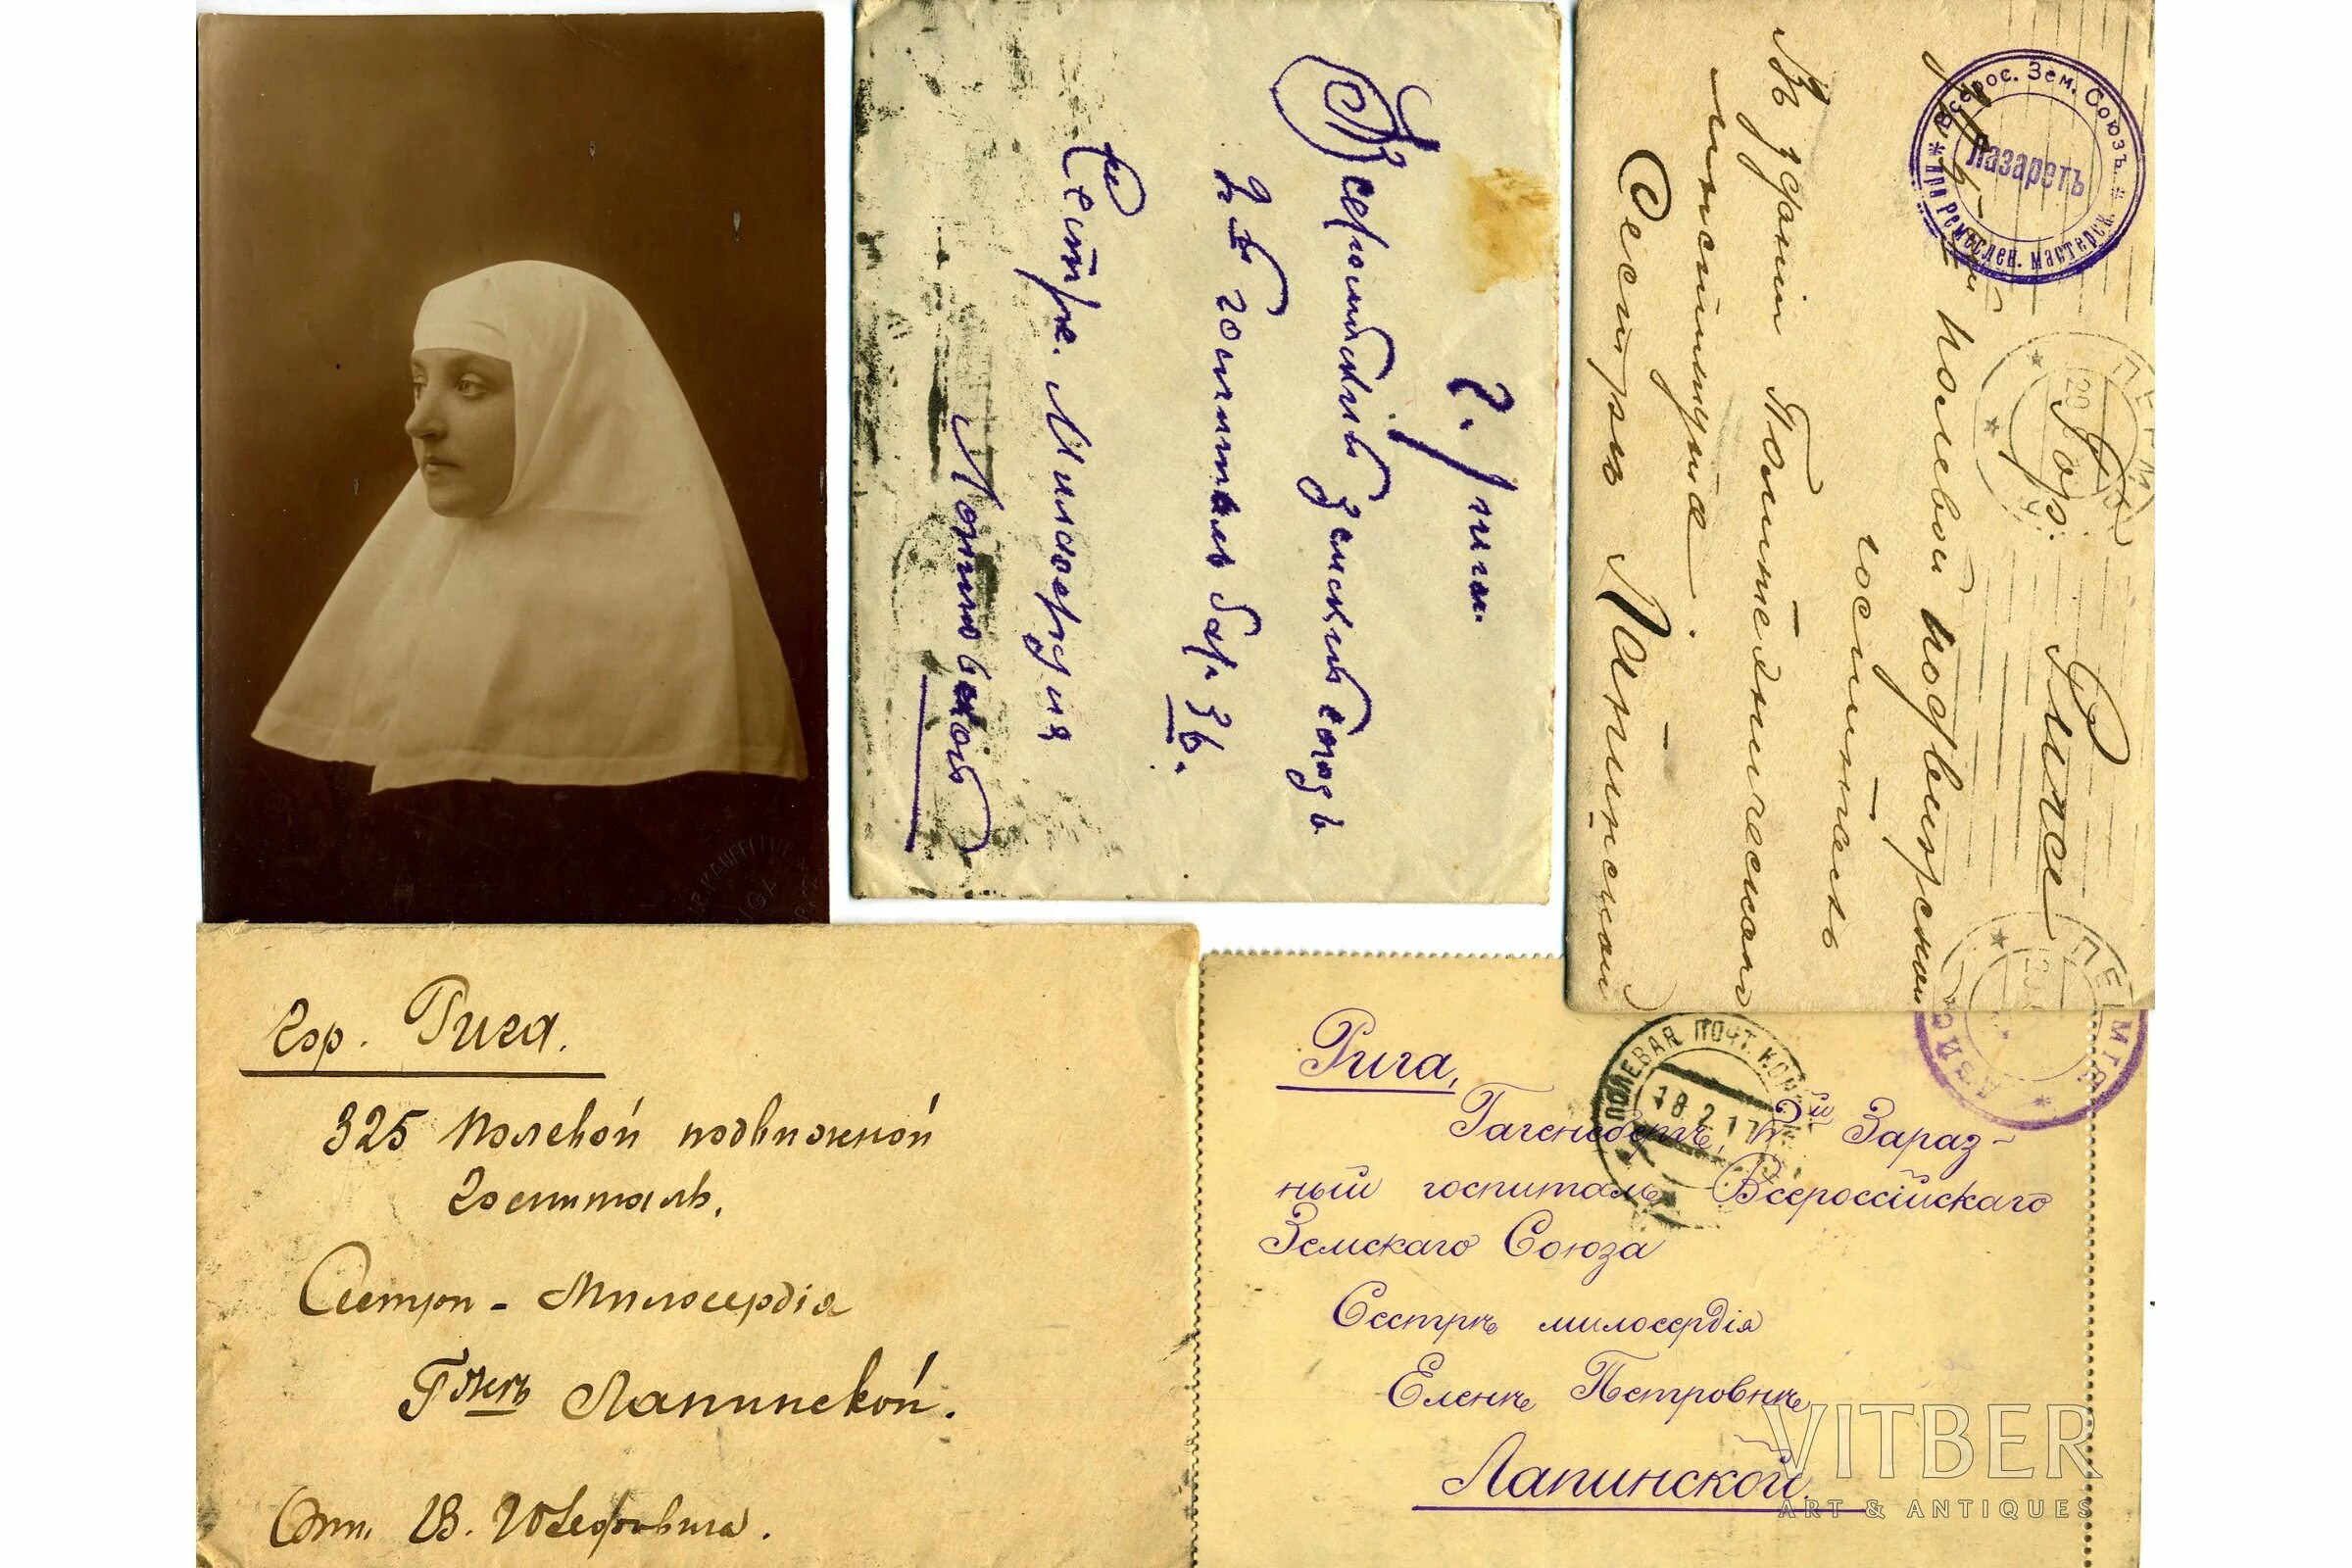 г. Рига.
Всероссийскій Земскій Союзъ
2-й госпиталь бар. 36.
Сестре. Милосердия
Лапинской
Гор. Рига
полевой подвижной
госпиталь
Въ зданіи Политехническаго
института.
Сестрѣ Лапинской
Всерос. Зем. Союзъ.
Лазаретъ
при Ремеслен. мастерск.
ПЕРМЬ
ПЕРМЬ
RIGA
Гор. Рига.
325 Полевой подвижной
Госпиталь.
Сестрѣ - Милосердія
Г-жѣ Лапинской.
Отъ В.
Рига,
Гагенсбергъ, 2й Зараз-
ный госпиталь Всероссійскаго
Земскаго Союза
Сестрѣ милосердія
Еленѣ Петровнѣ
Лапинской.
ПОЛЕВАЯ ПОЧТ. КОН
18 2 17
VITBER
ART & ANTIQUES